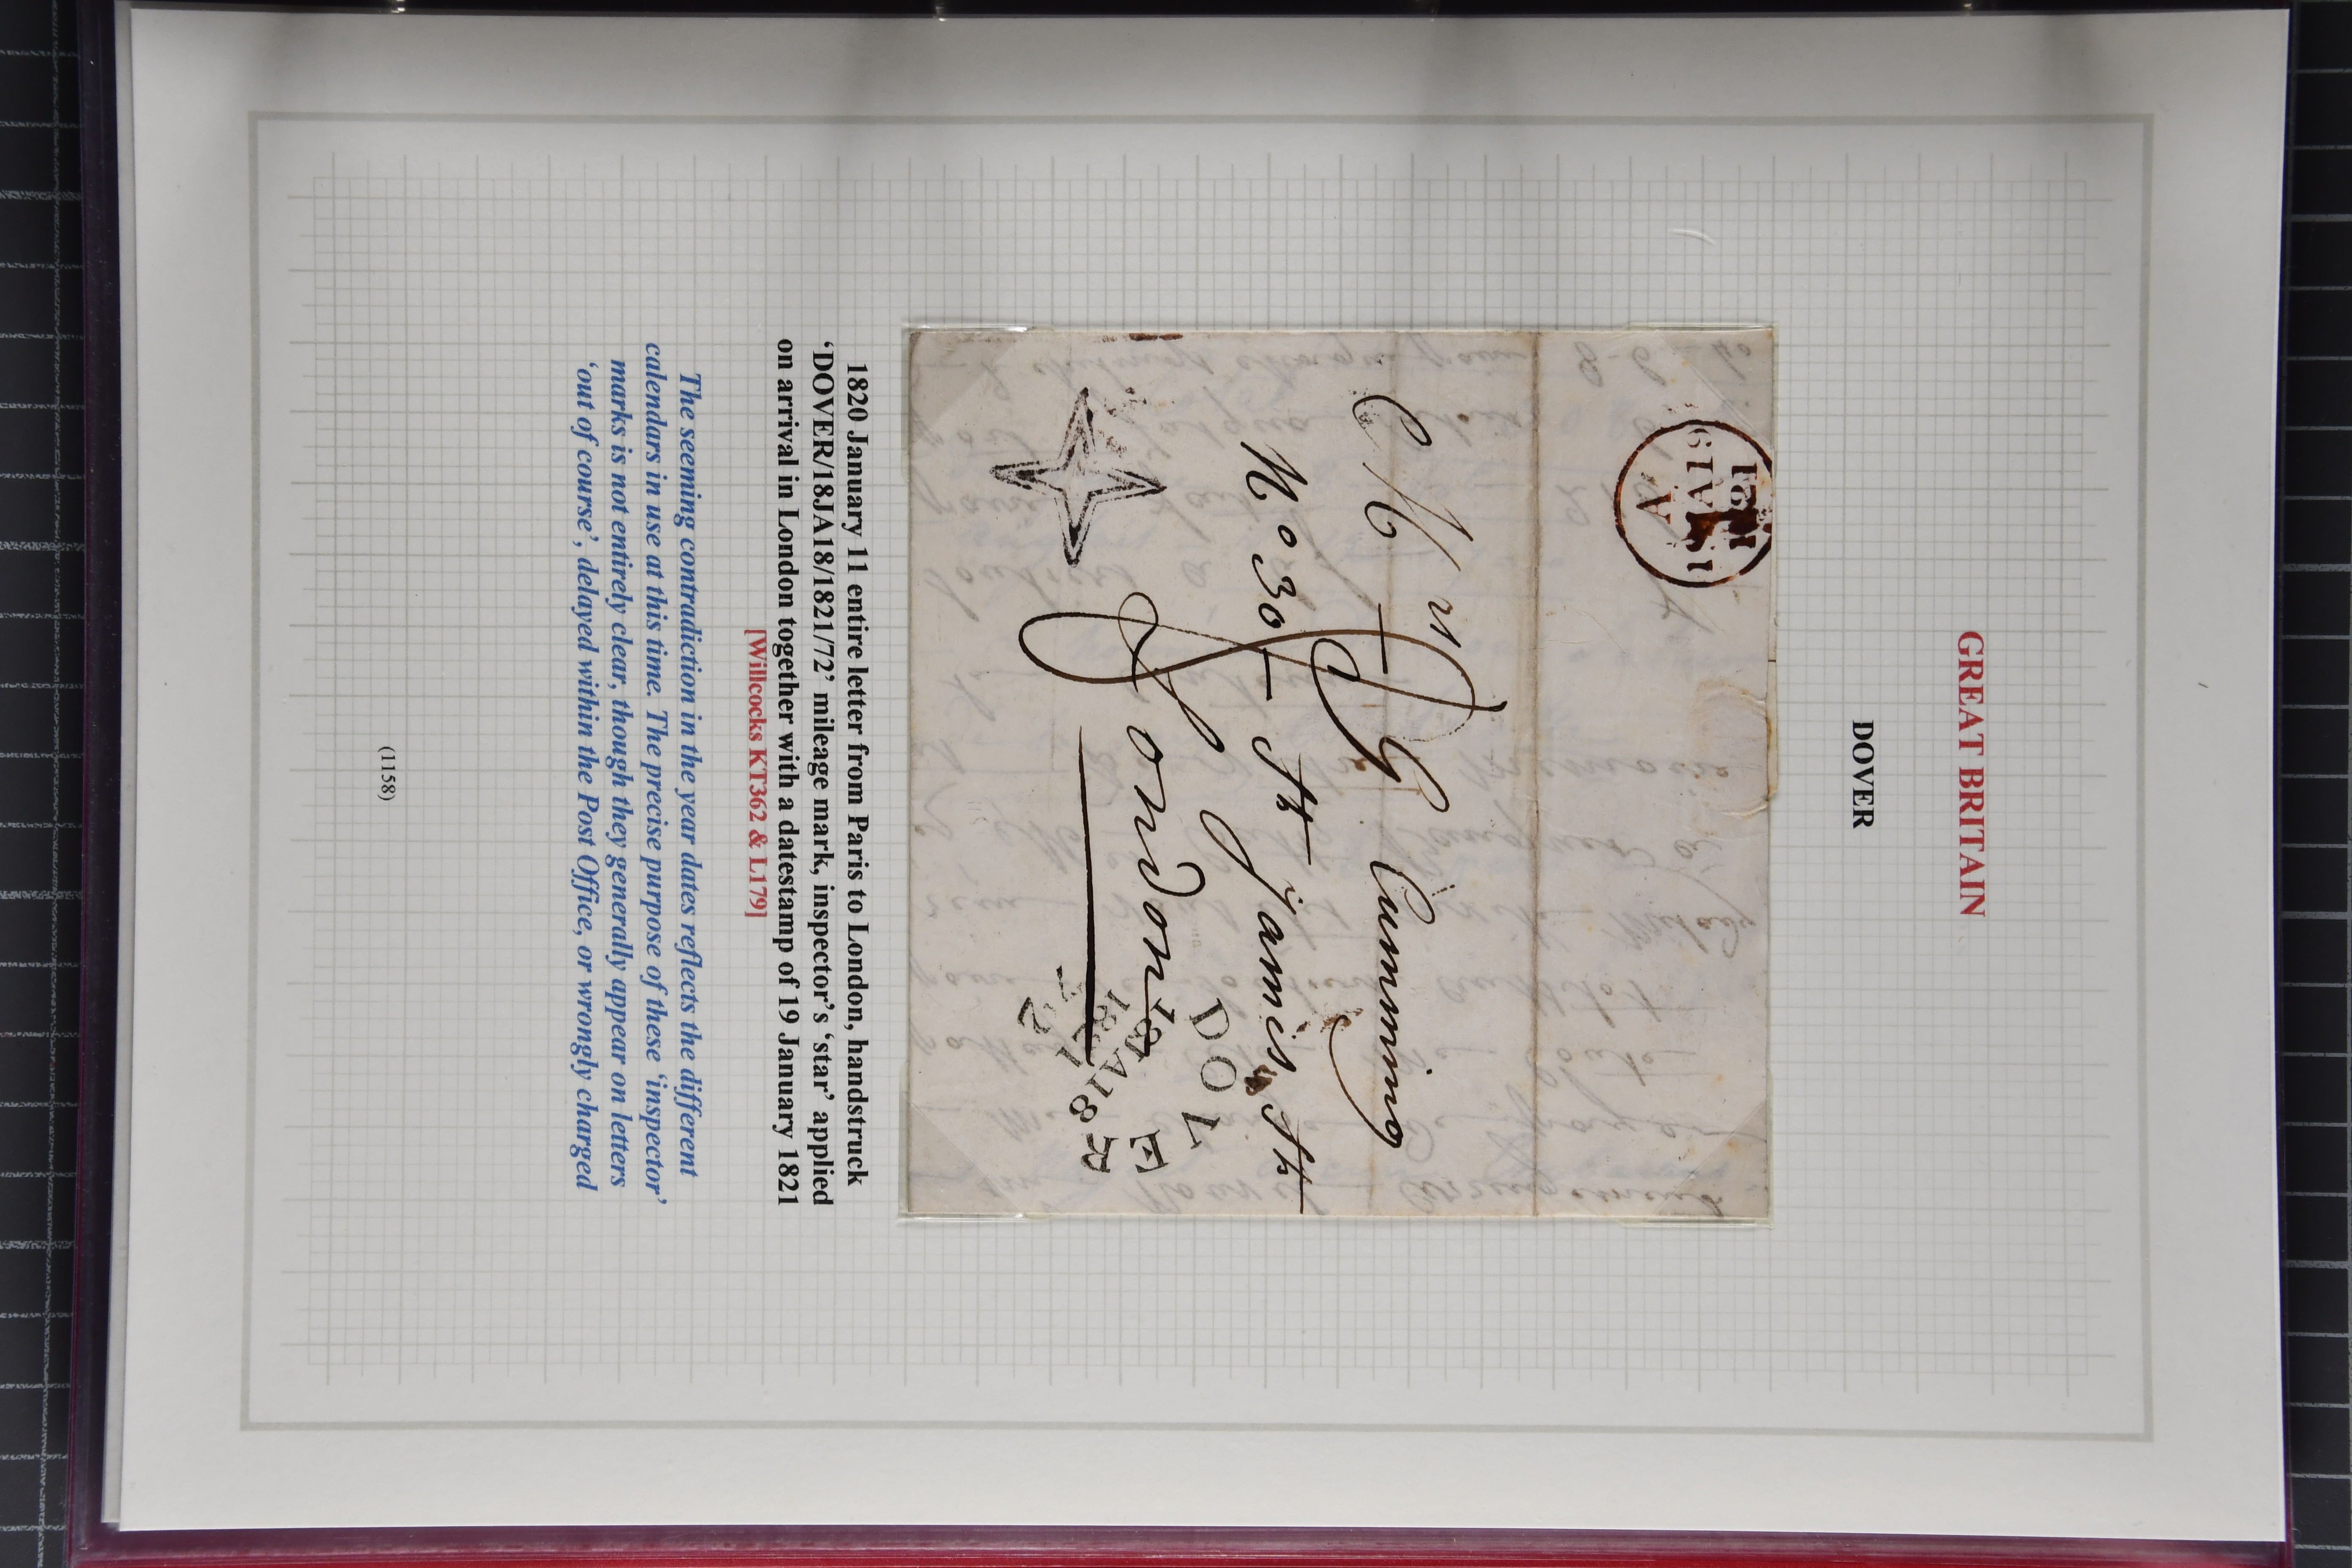 GREAT BRITAIN
DOVER
1821
19JA19
A
Mrs G Cumming
No 30 – St Jamis St
London
DOVER
18JA18
1821
72
1820 January 11 entire letter from Paris to London, handstruck
‘DOVER/18JA18/1821/72’ mileage mark, inspector’s ‘star’ applied
on arrival in London together with a datestamp of 19 January 1821
[Willcocks KT362 & L179]
The seeming contradiction in the year dates reflects the different
calendars in use at this time. The precise purpose of these ‘inspector’
marks is not entirely clear, though they generally appear on letters
‘out of course’, delayed within the Post Office, or wrongly charged
(1158)